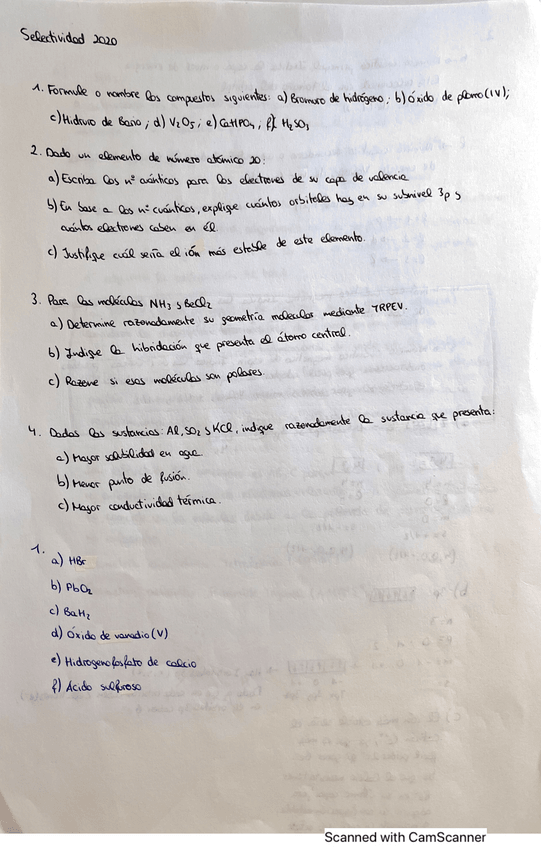 Selectividad 2020
1. Formule o nombre los compuestos siguientes: a) Bromuro de hidrógeno; b) Óxido de plomo (IV);
c) Hidruro de Bario; d) V2O5; e) CaHPO4; f) H2SO3
2. Dado un elemento de número atómico 20:
a) Escriba los nº cuánticos para los electrones de su capa de valencia
b) En base a los nº cuánticos, explique cuántos orbitales hay en su subnivel 3p y
cuántos electrones caben en él.
c) Justifique cuál sería el ión más estable de este elemento.
3. Para las moléculas NH3 y BeCl2
a) Determine razonadamente su geometría molecular mediante TRPEV.
b) Indique la hibridación que presenta el átomo central.
c) Razone si esas moléculas son polares.
4. Dadas las sustancias: Al, SO2 y KCl, indique razonadamente la sustancia que presenta:
a) Mayor solubilidad en agua
b) Menor punto de fusión.
c) Mayor conductividad térmica.
1.
a) HBr
b) PbO2
c) BaH2
d) Óxido de vanadio (V)
e) Hidrogenofosfato de calcio
f) Ácido sulfuroso
Scanned with CamScanner